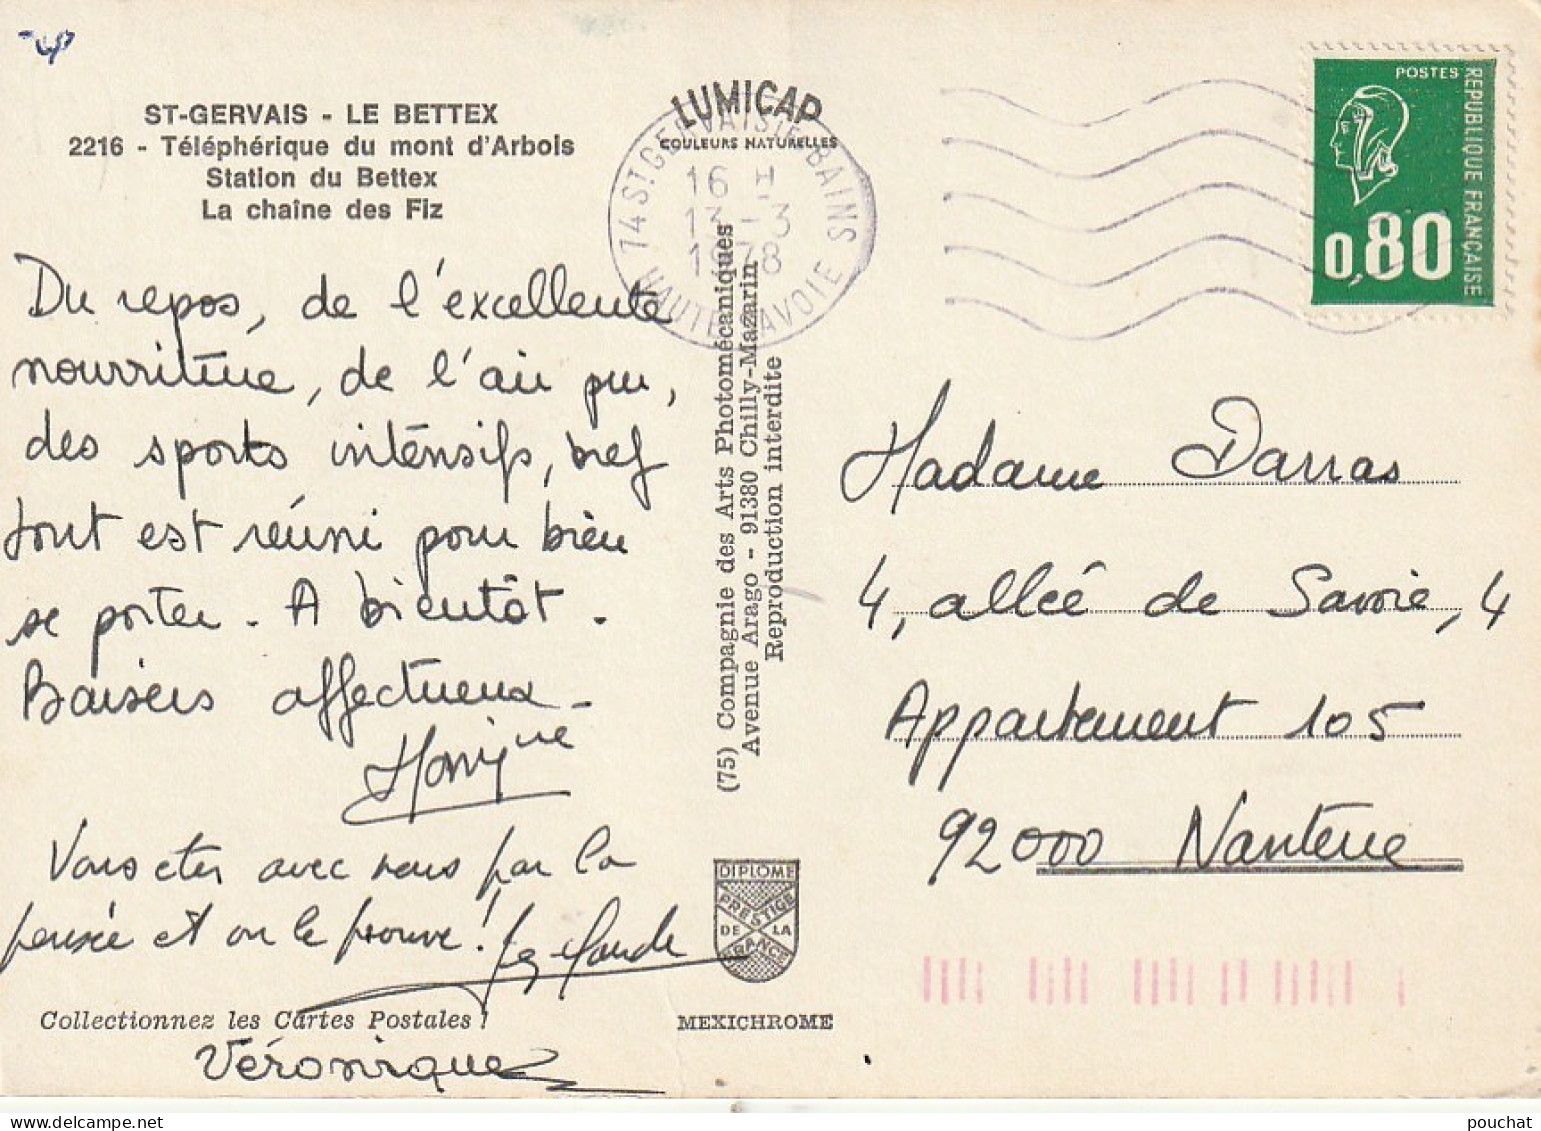 ST-GERVAIS - LE BETTEX
2216 - Téléphérique du mont d'Arbois
Station du Bettex
La chaîne des Fiz
LUMICAP
COULEURS NATURELLES
74 ST GERVAIS LES BAINS
16 H
13 - 3
1978
HAUTE SAVOIE
POSTES
REPUBLIQUE FRANÇAISE
0,80
Du repos, de l'excellente
nourriture, de l'air pur,
des sports intensifs, bref
tout est réuni pour bien
se porter. A bientôt.
Baisers affectueux.
Vous etes avec nous par la
pensée et on le prouve !
Véronique
(75) Compagnie des Arts Photomécaniques
Avenue Arago - 91380 Chilly-Mazarin
Reproduction interdite
Madame Darras
4, allée de Savoie, 4
Appartement 105
92000 Nanterre
DIPLOME
PRESTIGE
DE LA
FRANCE
Collectionnez les Cartes Postales !
MEXICHROME
pouchat